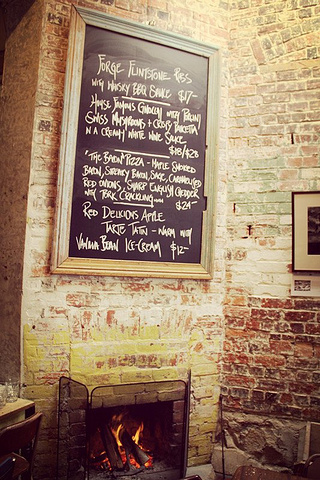 Forge Flintstone Ribs
with Whisky BBQ Sauce $17-
House Famous Gnocchi with Porcini
Swiss Mushrooms + Crispy Pancetta
in a Creamy White Wine Sauce
$18/$26
"The Bacon" Pizza - Maple Smoked
Bacon, Streaky Bacon, Sage, Caramelised
Red Onions, Sharp English Cheddar
with Pork Crackling $24-
Red Delicious Apple
Tarte Tatin - Warm with
Vanilla Bean Ice-Cream $12-